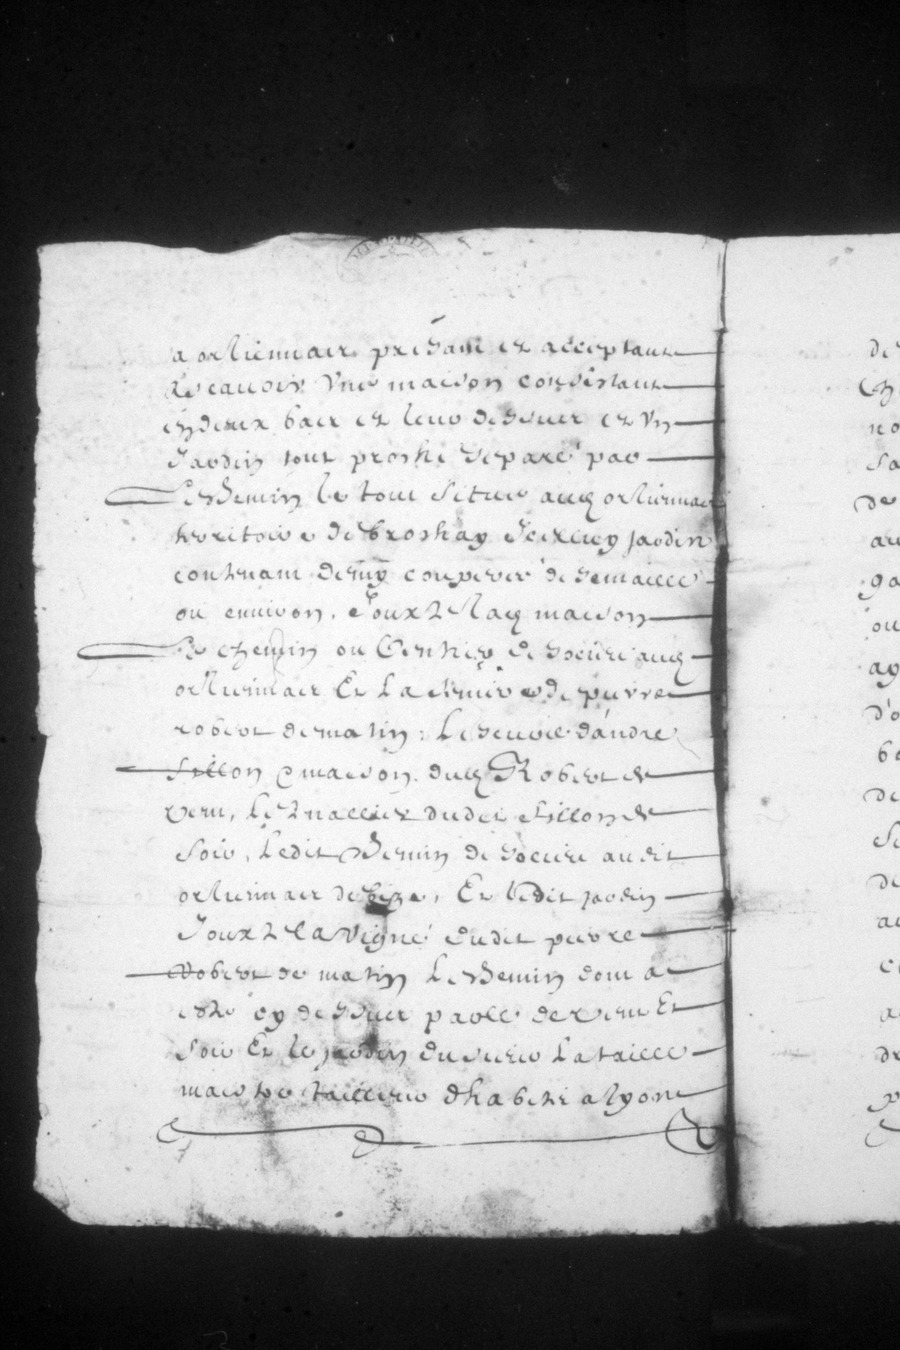 a orlienniair présant et acceptant
Scavoir Une maison consistant
en deux bas et leur dessuer et Un
Jardin tout proshe separé par
Leshemin le tout situe audit orliennair
territoire de broshay Jceluy jardin
contenant demy couperée de semaille
ou environ. Jouxte lad maison
Le chemin ou sentier de soucieu aud
orlienniair Et La de pierre
robert de matin, Le d'andre
Sillon & maison dud Robert de
vent, Le dudit sillon de
Soir, Ledit shemin de soucieu audit
orlienniair de bize, Et ledit jardin
Jouxte la vigne dudit pierre
Robert de matin Leshemin dont a
este cy dessuer parlé de vent Et
Soir Et le jardin du sieur Lataille
maitre tailleur d'habits a lyon